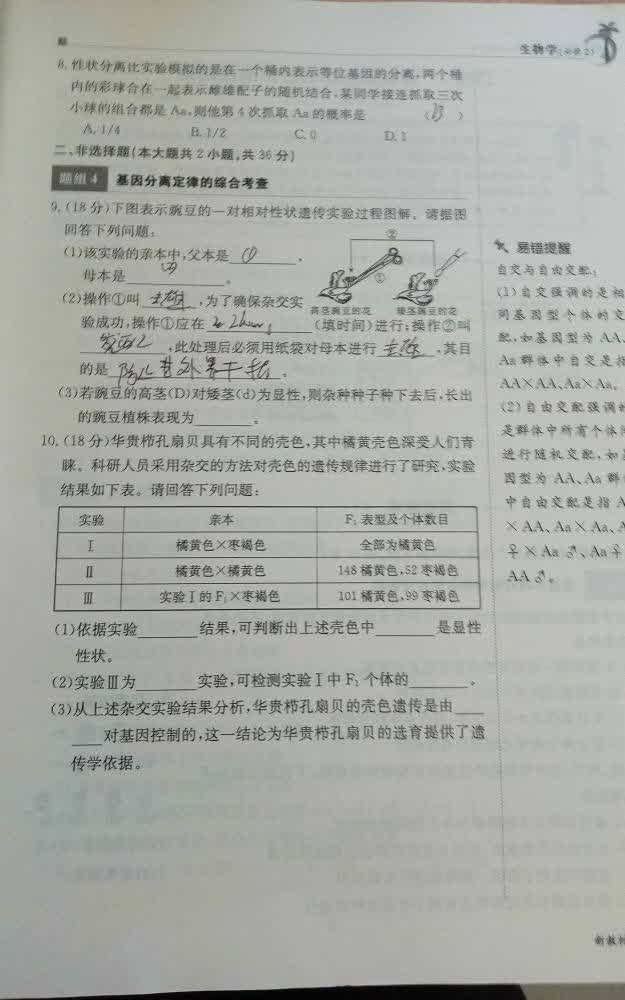 生物学(必修2)
8.性状分离比实验模拟的是在一个桶内表示等位基因的分离,两个桶
内的彩球合在一起表示雌雄配子的随机结合,某同学接连抓取三次
小球的组合都是Aa,则他第4次抓取Aa的概率是 (B)
A.1/4 B.1/2 C.0 D.1
二、非选择题(本大题共2小题,共36分)
题组4 基因分离定律的综合考查
9.(18分)下图表示豌豆的一对相对性状遗传实验过程图解。请据图
回答下列问题:
(1)该实验的亲本中,父本是 ,
母本是 。
②
①
高茎豌豆的花 矮茎豌豆的花
(2)操作①叫 去雄 ,为了确保杂交实
验成功,操作①应在 (填时间)进行;操作②叫
,此处理后必须用纸袋对母本进行 ,其目
的是 。
(3)若豌豆的高茎(D)对矮茎(d)为显性,则杂种种子种下去后,长出
的豌豆植株表现为 。
10.(18分)华贵栉孔扇贝具有不同的壳色,其中橘黄壳色深受人们青
睐。科研人员采用杂交的方法对壳色的遗传规律进行了研究,实验
结果如下表。请回答下列问题:
实验 亲本 F₁表型及个体数目
Ⅰ 橘黄色×枣褐色 全部为橘黄色
Ⅱ 橘黄色×橘黄色 148橘黄色,52枣褐色
Ⅲ 实验Ⅰ的F₁×枣褐色 101橘黄色,99枣褐色
(1)依据实验 结果,可判断出上述壳色中 是显性
性状。
(2)实验Ⅲ为 实验,可检测实验Ⅰ中F₁个体的 。
(3)从上述杂交实验结果分析,华贵栉孔扇贝的壳色遗传是由
对基因控制的,这一结论为华贵栉孔扇贝的选育提供了遗
传学依据。
易错提醒
自交与自由交配:
(1)自交强调的是相
同基因型个体的交
配,如基因型为AA、
Aa群体中自交是指
AA×AA、Aa×Aa。
(2)自由交配强调的
是群体中所有个体
进行随机交配,如基
因型为AA、Aa群
中自由交配是指A
×AA、Aa×Aa、A
♀×Aa♂、Aa♀
AA♂。
新教材